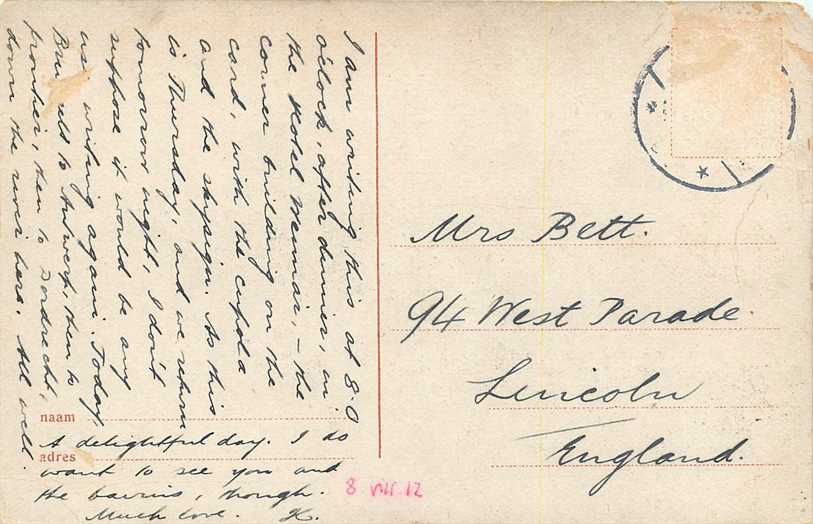 I am writing this at 8.0
o'clock, after dinner, in
the Hotel Weimar, – the
corner building on the
card, with the cupola
and the skysign. As this
is Thursday, and we return
tomorrow night, I don't
suppose it would be any
use writing again. Today,
Brussels to Antwerp, then to
frontier, then to Dordrecht,
down the river here. All well.
naam
A delightful day. I do
adres
want to see you and
the bairns, though.
Much love. H.
8 VIII 12
Mrs Bett.
94 West Parade.
Lincoln
England.